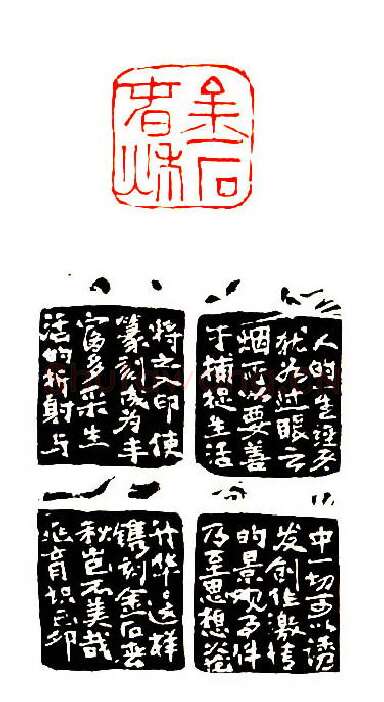 金石
春秋
人的生经历
犹如过眼云
烟 要善
于捕捉生活
中一切可以诱
发创作激情
的景观事件
乃至思想
将之入印使
篆刻成为丰
富多采生
活的折射与
升华。这样
镌刻金石春
秋岂不美哉